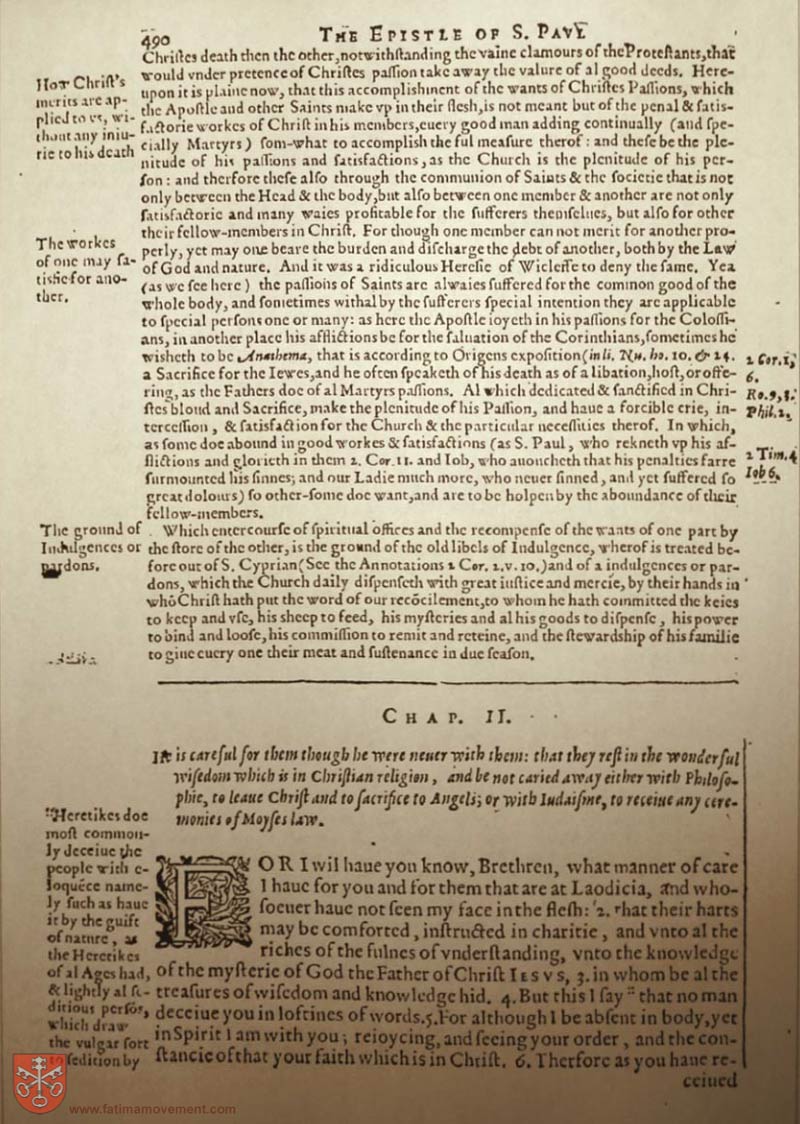 490
THE EPISTLE OF S. PAVL
Christes death then the other, notwithſtanding the vaine clamours of the Proteſtants, that
would vnder pretence of Chriſtes paſſion take away the valure of al good deeds. Here-
upon it is plaine now, that this accompliſhment of the wants of Chriſtes Paſſions, which
the Apoſtle and other Saints make vp in their fleſh, is not meant but of the penal & ſatiſ-
factorie workes of Chriſt in his members, euery good man adding continually (and ſpe-
cially Martyrs) ſom-what to accompliſh the ful meaſure therof: and theſe be the ple-
nitude of his paſſions and ſatisfactions, as the Church is the plenitude of his per-
ſon: and therfore theſe alſo through the communion of Saints & the ſocietie that is not
only between the Head & the body, but alſo between one member & another are not only
ſatisfactorie and many waies profitable for the ſufferers themſelues, but alſo for other
their fellow-members in Chriſt. For though one member can not merit for another pro-
perly, yet may one beare the burden and diſcharge the debt of another, both by the Law
of God and nature. And it was a ridiculous Hereſie of Wicleffe to deny the ſame. Yea
(as we ſee here) the paſſions of Saints are alwaies ſuffered for the common good of the
whole body, and ſometimes withal by the ſufferers ſpecial intention they are applicable
to ſpecial perſons one or many: as here the Apoſtle ioyeth in his paſſions for the Coloſſi-
ans, in another place his afflictions be for the ſaluation of the Corinthians, ſometimes he
wiſheth to be Anathema, that is according to Origens expoſition (in li. Nu. ho. 10. & 24.
a Sacrifice for the Iewes, and he often ſpeaketh of his death as of a libation, hoſt, or offe-
ring, as the Fathers doe of al Martyrs paſſions. Al which dedicated & ſanctified in Chri-
ſtes bloud and Sacrifice, make the plenitude of his Paſſion, and haue a forcible crie, in-
terceſſion, & ſatisfaction for the Church & the particular neceſſities therof. In which,
as ſome doe abound in good workes & ſatisfactions (as S. Paul, who rekneth vp his af-
flictions and glorieth in them 2. Cor. 11. and Iob, who auoucheth that his penalties farre
ſurmounted his ſinnes; and our Ladie much more, who neuer ſinned, and yet ſuffered ſo
great dolours) ſo other-ſome doe want, and are to be holpen by the aboundance of their
fellow-members.
Which entercourſe of ſpiritual offices and the recompenſe of the wants of one part by
the ſtore of the other, is the ground of the old libels of Indulgence, wherof is treated be-
fore out of S. Cyprian (See the Annotations 2 Cor. 2. v. 10.) and of a indulgences or par-
dons, which the Church daily diſpenſeth with great iuſtice and mercie, by their hands in
whõ Chriſt hath put the word of our recõcilement, to whom he hath committed the keies
to keep and vſe, his ſheep to feed, his myſteries and al his goods to diſpenſe, his power
to bind and looſe, his commiſſion to remit and reteine, and the ſtewardſhip of his familie
to giue euery one their meat and ſuſtenance in due ſeaſon.
How Chriſt's
merits are ap-
plied to vs, wi-
thout any iniu-
rie to his death
The workes
of one may ſa-
tisfie for ano-
ther.
The ground of
Indulgences or
pardons.
2 Cor. 1,
6.
Ro. 9, 3.
Phil. 2.
2 Tim. 4
Iob 6.
CHAP. II.
He is careful for them though he were neuer with them: that they reſt in the wonderful
wiſedom which is in Chriſtian religion, and be not caried away either with Philoſo-
phie, to leaue Chriſt and to ſacrifice to Angels; or with Iudaiſme, to receiue any cere-
monies of Moyſes law.
FOR I wil haue you know, Brethren, what manner of care
I haue for you and for them that are at Laodicia, and who-
ſoeuer haue not ſeen my face in the fleſh: 2. that their harts
may be comforted, inſtructed in charitie, and vnto al the
riches of the fulnes of vnderſtanding, vnto the knowledge
of the myſterie of God the Father of Chriſt IESVS, 3. in whom be al the
treaſures of wiſedom and knowledge hid. 4. But this I ſay " that no man
deceiue you in loftines of words. 5. For although I be abſent in body, yet
in Spirit I am with you; reioycing, and ſeeing your order, and the con-
ſtancie of that your faith which is in Chriſt. 6. Therfore as you haue re-
ceiued
"Heretikes doe
moſt common-
ly deceiue the
people with e-
loquẽce name-
ly ſuch as haue
it by the guift
of nature, as
the Heretikes
of al Ages had,
& lightly al ſe-
ditious perſõs,
which draw
the vulgar ſort
to ſedition by
www.fatimamovement.com